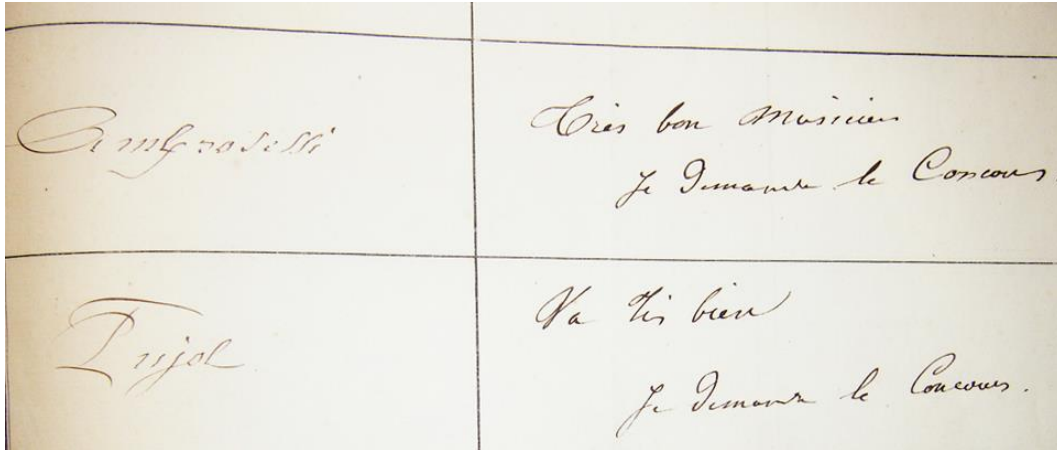 Ambroselli
Très bon Musicien
Je Demande le Concours.
Pujol
Va très bien
Je Demande le Concours.